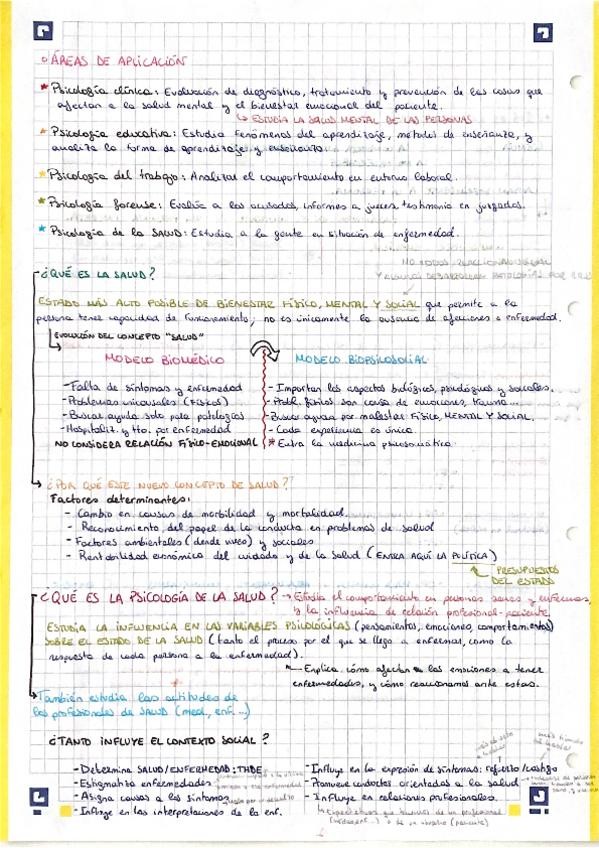 ○ ÁREAS DE APLICACIÓN
* Psicología clínica: Evaluación de diagnóstico, tratamiento y prevención de las cosas que
afectan a la salud mental y el bienestar emocional del paciente.
↳ ESTUDIA LA SALUD MENTAL DE LAS PERSONAS
* Psicología educativa: Estudia fenómenos del aprendizaje, métodos de enseñanza, y
analiza la forma de aprendizaje y enseñanza.
* Psicología del trabajo: Analizar el comportamiento en entorno laboral.
* Psicología forense: Evalúa a los acusados, informes a jueces, testimonio en juzgados.
* Psicología de la SALUD: Estudia a la gente en situación de enfermedad.
NO TODOS REACCIONAN IGUAL
Y ALGUNOS DESARROLLAN PATOLOGÍAS POR
¿QUÉ ES LA SALUD?
ESTADO MÁS ALTO POSIBLE DE BIENESTAR FÍSICO, MENTAL Y SOCIAL que permite a la
persona tener capacidad de funcionamiento; no es únicamente la ausencia de afecciones o enfermedad.
EVOLUCIÓN DEL CONCEPTO "SALUD"
MODELO BIOMÉDICO
- Falta de síntomas y enfermedad
- Problemas unicausales (FÍSICOS)
- Buscar ayuda solo para patologías
- Hospitaliz. y tto. por enfermedad
NO CONSIDERA RELACIÓN FÍSICO-EMOCIONAL
MODELO BIOPSICOSOCIAL
- Importan los aspectos biológicos, psicológicos y sociales.
- Probl. físicos son causa de emociones, trauma...
- Buscar ayuda por malestar FÍSICO, MENTAL Y SOCIAL.
- Cada experiencia es única.
* Entra la medicina psicosomática.
¿POR QUÉ ESTE NUEVO CONCEPTO DE SALUD?
Factores determinantes:
- Cambio en causas de morbilidad y mortalidad.
- Reconocimiento del papel de la conducta en problemas de salud
- Factores ambientales (donde vives) y sociales
- Rentabilidad económica del cuidado y de la salud (ENTRA AQUÍ LA POLÍTICA)
PRESUPUESTOS
DEL ESTADO
¿QUÉ ES LA PSICOLOGÍA DE LA SALUD? → Estudia el comportamiento en personas sanas y enfermas,
y la influencia de relación profesional-paciente.
ESTUDIA LA INFLUENCIA EN LAS VARIABLES PSICOLÓGICAS (pensamientos, emociones, comportamientos)
SOBRE EL ESTADO DE LA SALUD (tanto el proceso por el que se llega a enfermar, como la
respuesta de cada persona a la enfermedad).
Explica cómo afectan las emociones a tener
enfermedades, y cómo reaccionamos ante estas.
También estudia las actitudes de
los profesionales de SALUD (med., enf. ...)
¿TANTO INFLUYE EL CONTEXTO SOCIAL?
- Determina SALUD/ENFERMEDAD: THDE
- Estigmatiza enfermedades
- Asigna causas a los síntomas
- Influye en las interpretaciones de la enf.
- Influye en la expresión de síntomas: refuerzo/castigo
- Promueve conductas orientadas a la salud
- Influye en relaciones profesionales.